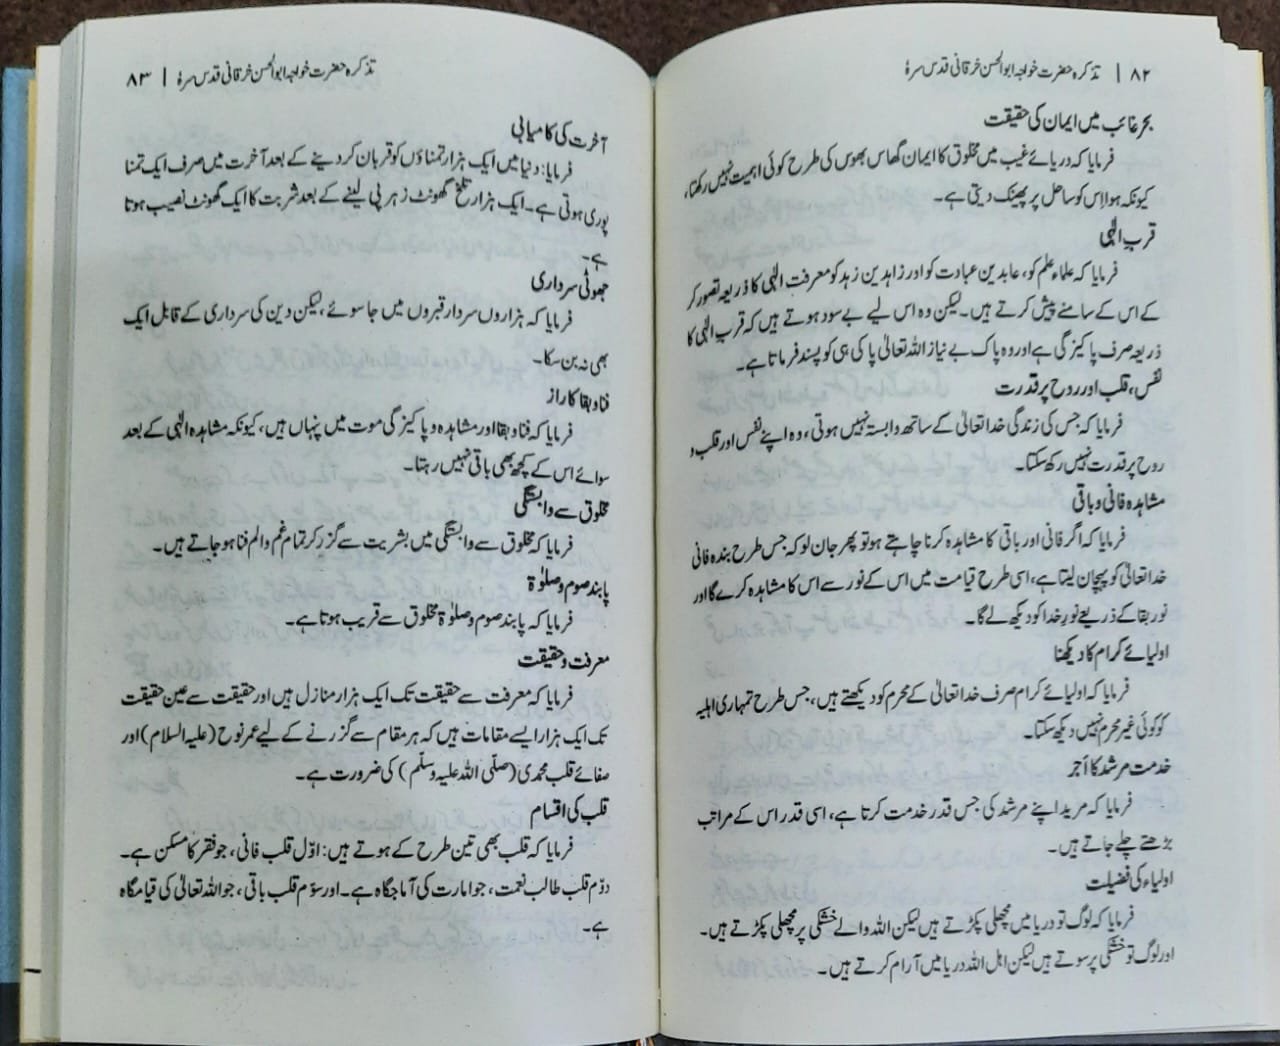 ۸۲ | تذکرہ حضرت خواجہ ابوالحسن خرقانی قدس سرہٗ
بحر غائب میں ایمان کی حقیقت
فرمایا کہ دریائے غیب میں مخلوق کا ایمان گھاس پھوس کی طرح کوئی اہمیت نہیں رکھتا،
کیونکہ ہوا اِس کو ساحل پر پھینک دیتی ہے۔
قربِ الٰہی
فرمایا کہ علماء علم کو، عابدین عبادت کو اور زاہدین زہد کو معرفت الٰہی کا ذریعہ تصور کر
کے اس کے سامنے پیش کرتے ہیں۔ لیکن وہ اس لیے بے سود ہوتے ہیں کہ قرب الٰہی کا
ذریعہ صرف پاکیزگی ہے اور وہ پاک بے نیاز اللہ تعالیٰ پاکی ہی کو پسند فرماتا ہے۔
نفس، قلب اور روح پر قدرت
فرمایا کہ جس کی زندگی خدا تعالیٰ کے ساتھ وابستہ نہیں ہوتی، وہ اپنے نفس اور قلب و
روح پر قدرت نہیں رکھ سکتا۔
مشاہدہ فانی و باقی
فرمایا کہ اگر فانی اور باقی کا مشاہدہ کرنا چاہتے ہو تو پھر جان لو کہ جس طرح بندہ فانی
خدا تعالیٰ کو پہچان لیتا ہے، اسی طرح قیامت میں اس کے نور سے اس کا مشاہدہ کرے گا اور
نور بقا کے ذریعے نورِ خدا کو دیکھ لے گا۔
اولیائے کرام کا دیکھنا
فرمایا کہ اولیائے کرام صرف خدا تعالیٰ کے محرم کو دیکھتے ہیں، جس طرح تمہاری اہلیہ
کو کوئی غیر محرم نہیں دیکھ سکتا۔
خدمت مرشد کا اَجر
فرمایا کہ مرید اپنے مرشد کی جس قدر خدمت کرتا ہے، اسی قدر اس کے مراتب
بڑھتے چلے جاتے ہیں۔
اولیاء کی فضیلت
فرمایا کہ لوگ تو دریا میں مچھلی پکڑتے ہیں لیکن اللہ والے خشکی پر مچھلی پکڑتے ہیں۔
اور لوگ تو خشکی پر سوتے ہیں لیکن اہل اللہ دریا میں آرام کرتے ہیں۔
تذکرہ حضرت خواجہ ابوالحسن خرقانی قدس سرہٗ | ۸۳
آخرت کی کامیابی
فرمایا: دنیا میں ایک ہزار تمناؤں کو قربان کر دینے کے بعد آخرت میں صرف ایک تمنا
پوری ہوتی ہے۔ ایک ہزار تلخ گھونٹ زہر پی لینے کے بعد شربت کا ایک گھونٹ نصیب ہوتا
ہے۔
جھوٹی سرداری
فرمایا کہ ہزاروں سردار قبروں میں جا سوئے، لیکن دین کی سرداری کے قابل ایک
بھی نہ بن سکا۔
فنا و بقا کا راز
فرمایا کہ فنا و بقا اور مشاہدہ و پاکیزگی موت میں پنہاں ہیں، کیونکہ مشاہدہ الٰہی کے بعد
سوائے اس کے کچھ بھی باقی نہیں رہتا۔
مخلوق سے وابستگی
فرمایا کہ مخلوق سے وابستگی میں بشریت سے گزر کر تمام غم و الم فنا ہو جاتے ہیں۔
پابند صوم و صلوٰۃ
فرمایا کہ پابند صوم و صلوٰۃ مخلوق سے قریب ہوتا ہے۔
معرفت و حقیقت
فرمایا کہ معرفت سے حقیقت تک ایک ہزار منازل ہیں اور حقیقت سے عین حقیقت
تک ایک ہزار ایسے مقامات ہیں کہ ہر مقام سے گزرنے کے لیے عمر نوح (علیہ السلام) اور
صفائے قلب محمدی (صلّی اللہ علیہ وسلّم) کی ضرورت ہے۔
قلب کی اقسام
فرمایا کہ قلب بھی تین طرح کے ہوتے ہیں: اوّل قلب فانی، جو فقر کا مسکن ہے۔
دوّم قلب طالب نعمت، جو امارت کی آماجگاہ ہے۔ اور سوّم قلب باقی، جو اللہ تعالیٰ کی قیامگاہ
ہے۔